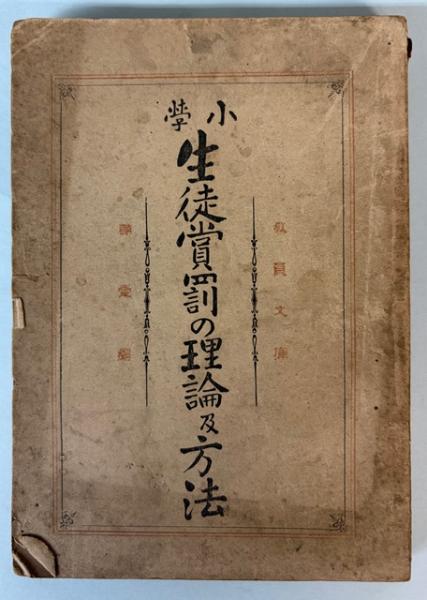 小學
生徒賞罰の理論及方法
教員文庫